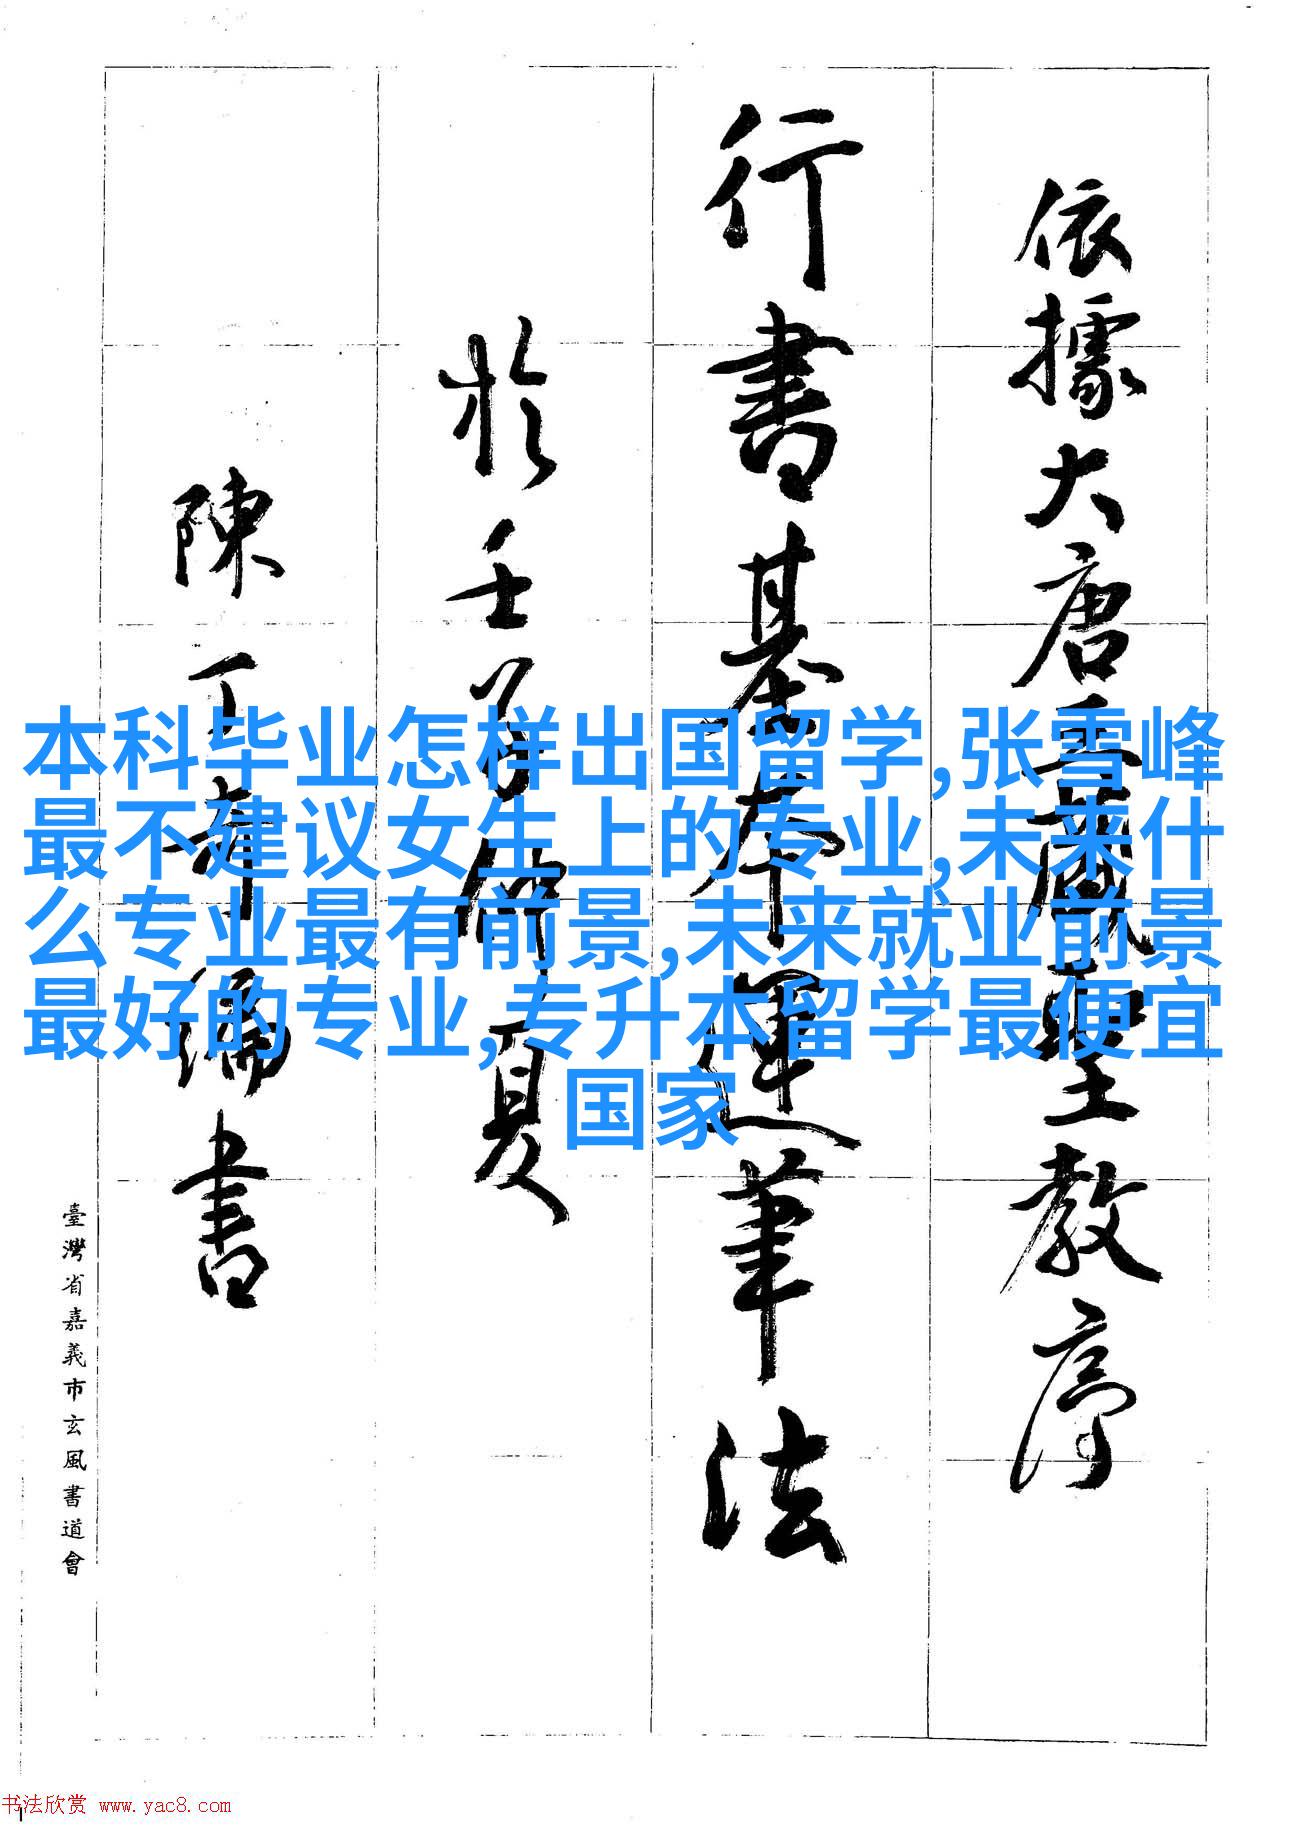 依據大唐三藏聖教序
行書基本運筆法
於壬子仲夏
陳丁奇編書
臺灣省嘉義市玄風書道會
本科毕业怎样出国留学,张雪峰
最不建议女生上的专业,未来什
么专业最有前景,未来就业前景
最好的专业,专升本留学最便宜
国家
书法欣赏 www.yac8.com